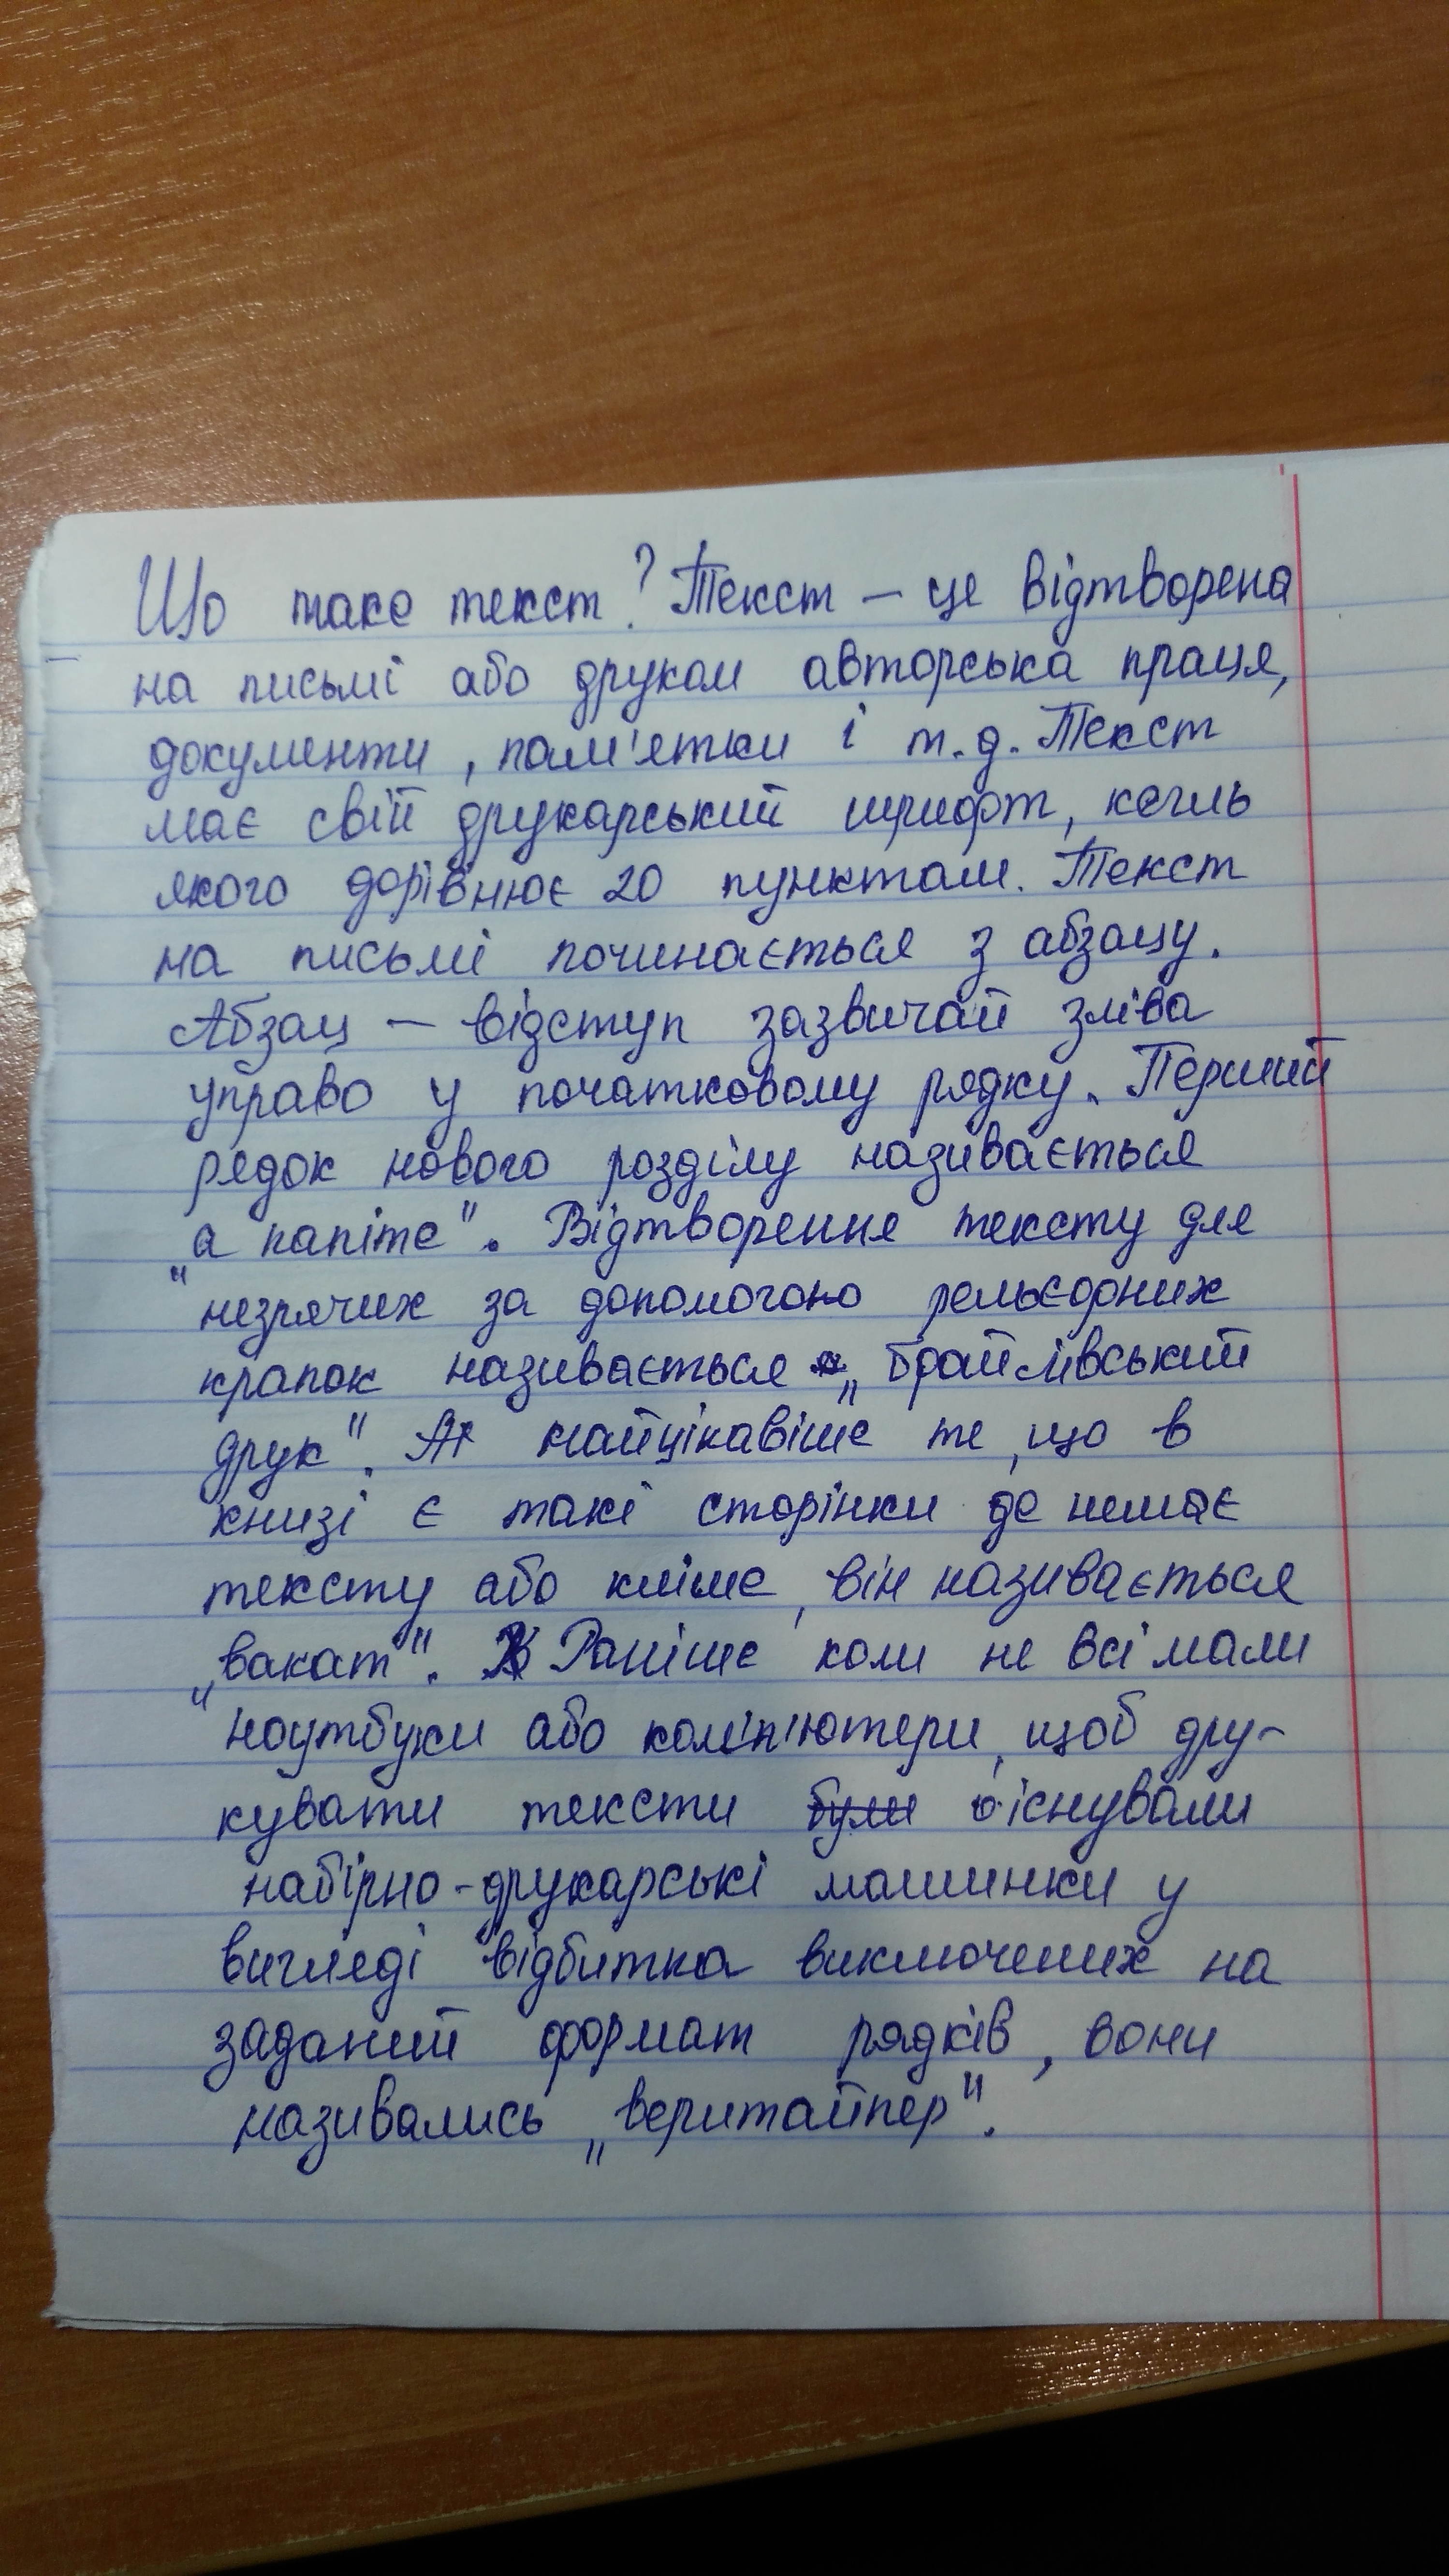 Що таке текст? Текст — це відтворена
на письмі або друком авторська праця,
документи, пам'ятки і т.д. Текст
має свій друкарський шрифт, кегль
якого дорівнює 20 пунктам. Текст
на письмі починається з абзацу.
Абзац — відступ зазвичай зліва
управо у початковому рядку. Перший
рядок нового розділу називається
„а капіте". Відтворення тексту для
незрячих за допомогою рельєфних
крапок називається „брайлівський
друк". А найцікавіше те, що в
книзі є такі сторінки де немає
тексту або кліше, він називається
„вакат". Раніше коли не всі мали
ноутбуки або комп'ютери, щоб дру-
кувати тексти були існували
набірно-друкарські машинки у
вигляді відбитка виключених на
заданий формат рядків, вони
називались „веритайпер".